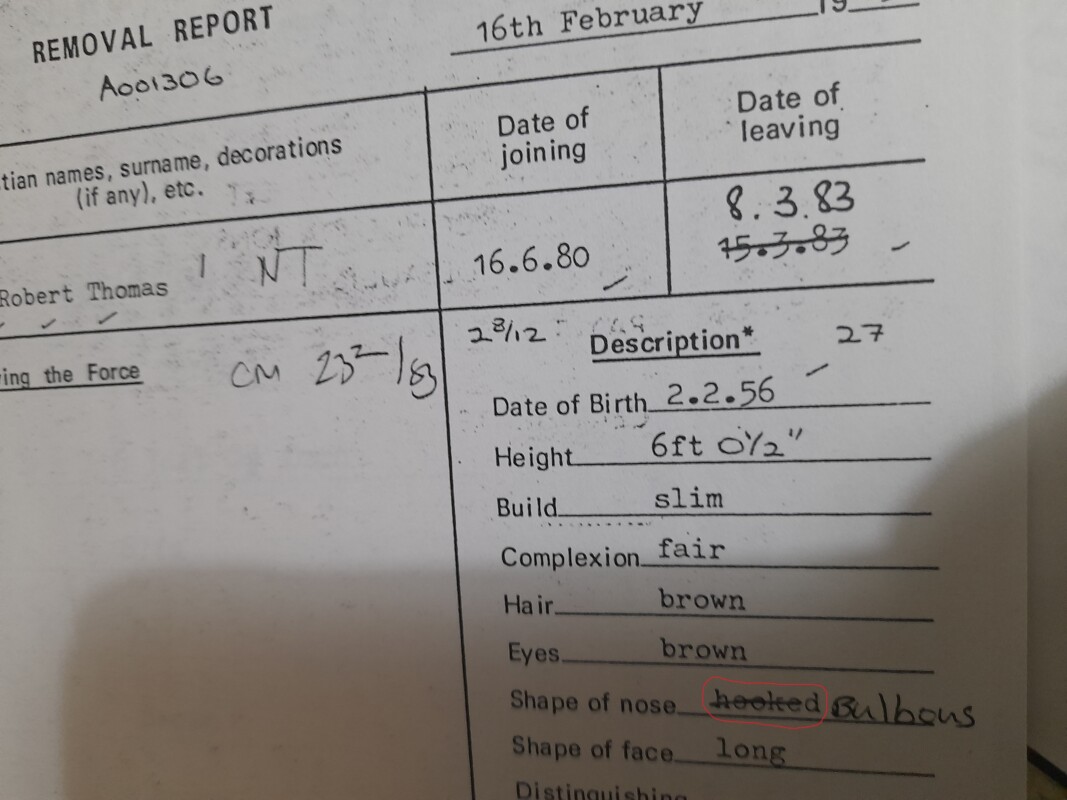 REMOVAL REPORT
16th February 19
A001306
tian names, surname, decorations
(if any), etc.
Date of
joining
Date of
leaving
Robert Thomas 1 NT
16.6.80
8.3.83
15.3.83
ing the Force
CM 23²/83
2 8/12
Description*
27
Date of Birth 2.2.56
Height 6ft 0½"
Build slim
Complexion fair
Hair brown
Eyes brown
Shape of nose hooked Bulbous
Shape of face long
Distinguishing